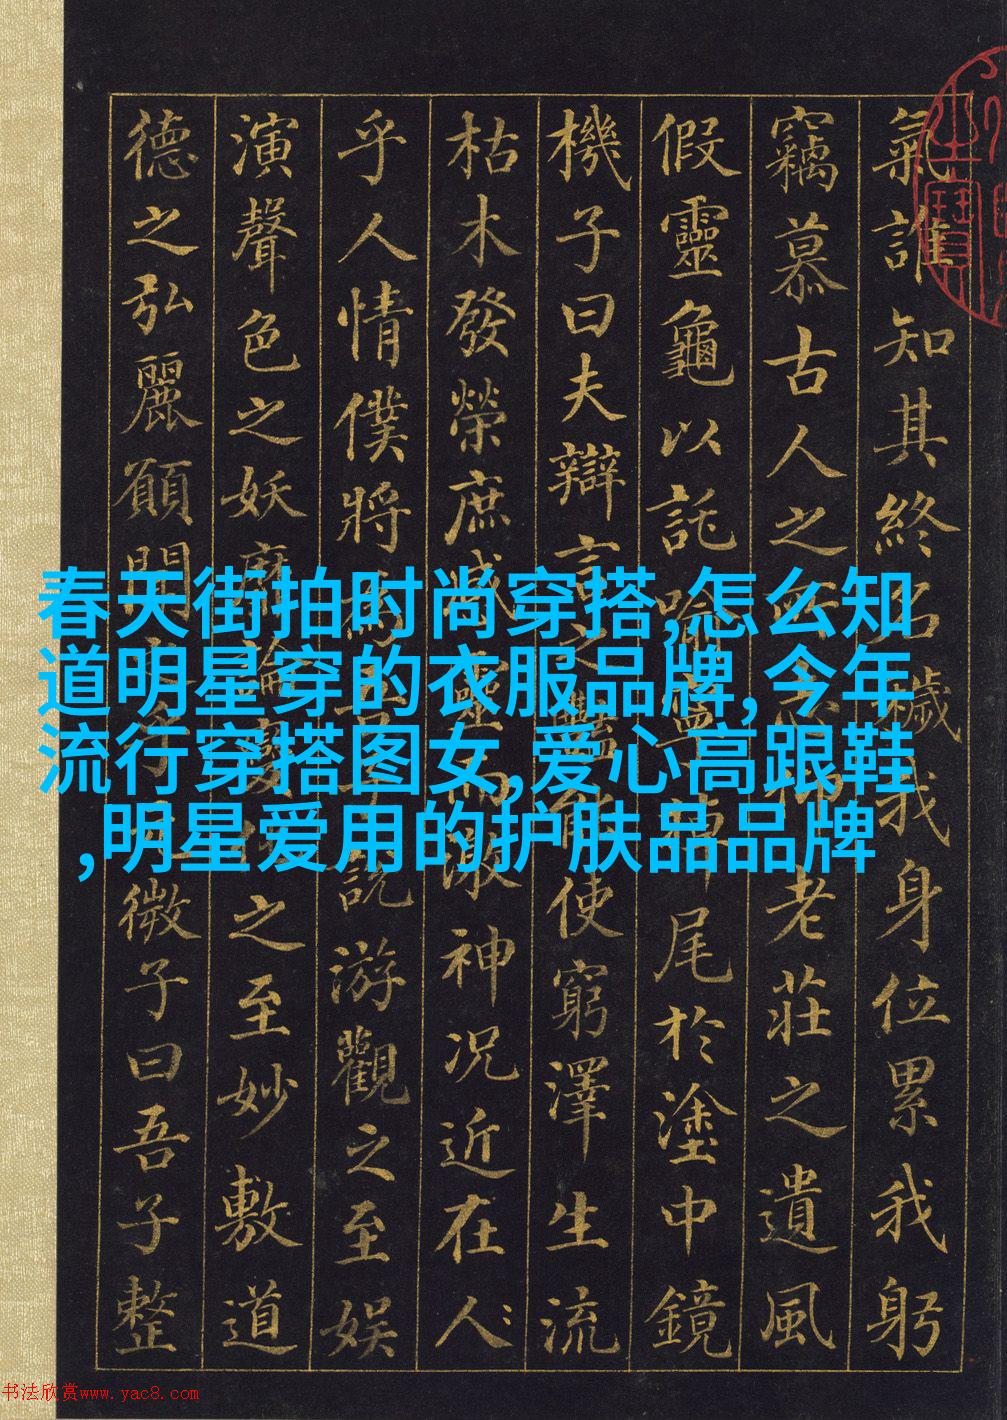 氣誰知其終名穢我身位累我躬
竊慕古人之所志仰老莊之遺風
假靈龜以託喻寧掉尾於塗中鏡
機子曰夫辯言之豔能使窮澤生流
枯木發榮庶感靈而激神況近在人
乎人情僕將為吾子説游觀之至娛
演聲色之妖靡論變化之至妙敷道
德之弘麗願聞子微子曰吾子整
春天街拍时尚穿搭,怎么知
道明星穿的衣服品牌,今年
流行穿搭图女,爱心高跟鞋
,明星爱用的护肤品品牌
书法欣赏www.yac8.com